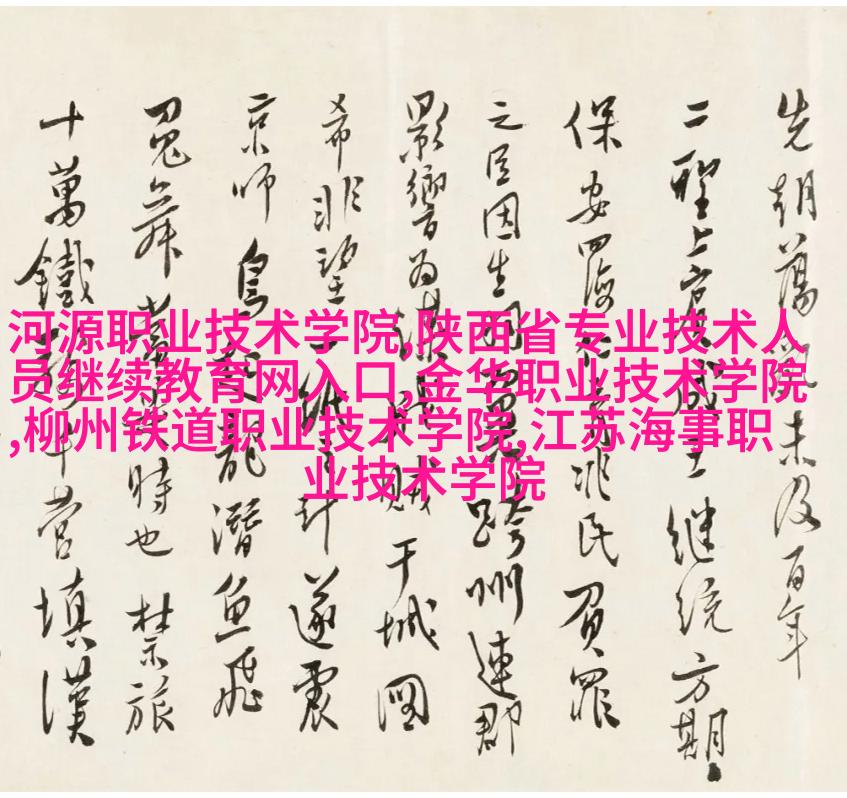 河源职业技术学院,陕西省专业技术人
员继续教育网入口,金华职业技术学院
,柳州铁道职业技术学院,江苏海事职
业技术学院
先朝蕩未及百年
二聖上王继統方期
保安四海兆民負罪
之臣因生跨州連郡
影響为謀賊干城圖
希非望計遂震
京师鳥龍潛魚飛
舞時也禁旅
十萬鐵騎營填漢